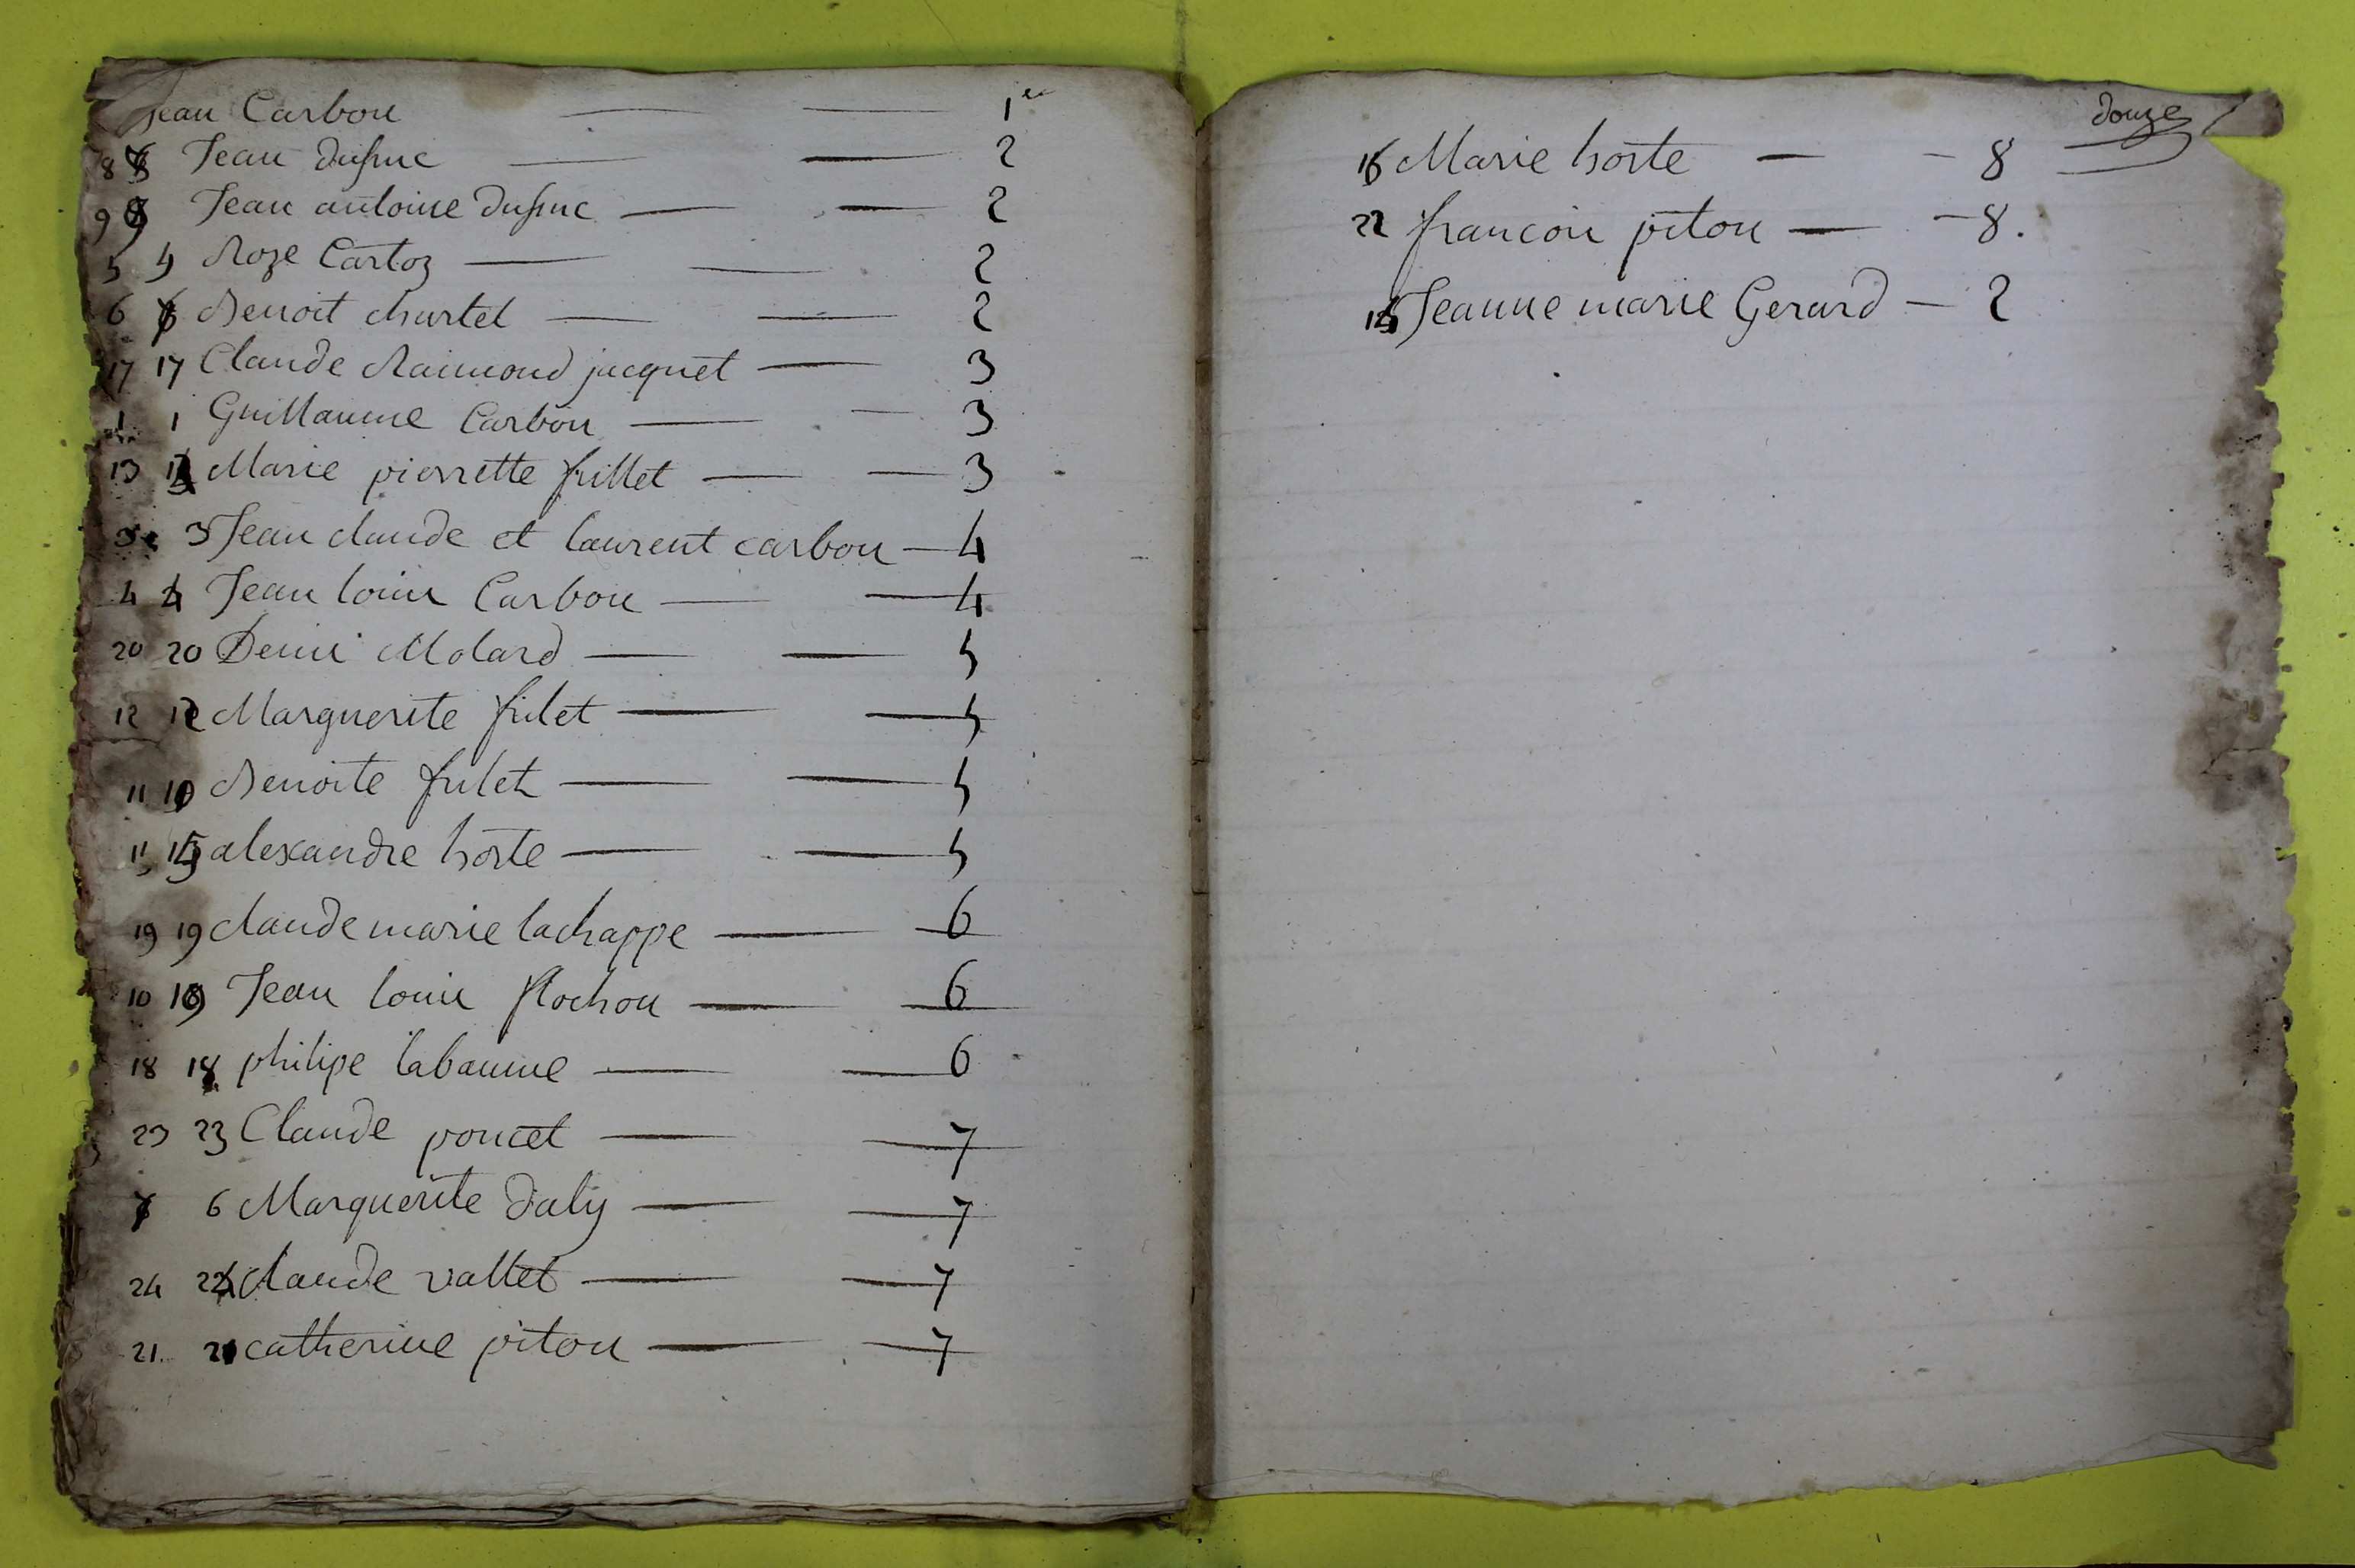 Jean Carbon 1er
8 8 Jean dufunc 2
9 9 Jean antoine dufunc 2
5 5 Roze Cartoz 2
6 6 Benoit churtet 2
17 17 Claude Raimond jacquet 3
1 1 Guillaume Carbon 3
13 13 Marie pierrette fillet 3
3 3 Jean claude et laurent carbon 4
4 4 Jean louis Carbon 4
20 20 Denis Molard 5
12 12 Marguerite filet 5
11 11 Benoite filet 5
15 15 alexandre horte 5
19 19 claude marie lachappe 6
10 10 Jean louis flochon 6
18 18 philipe labaume 6
23 23 Claude poncet 7
7 6 Marguerite daly 7
24 24 claude vallet 7
21 21 catherine piton 7
douze
16 Marie horte 8
22 francois piton 8.
14 Jeanne marie Gerard 2